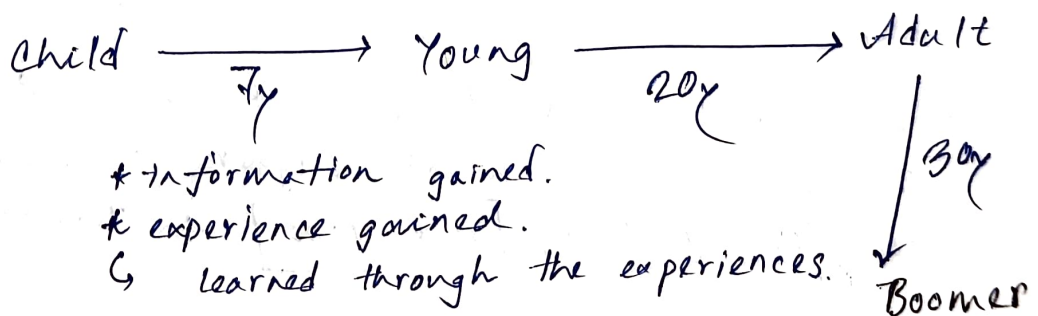 Child → Young → Adult
7y 20y
30y
* information gained.
* experience gained.
↳ learned through the experiences.
Boomer